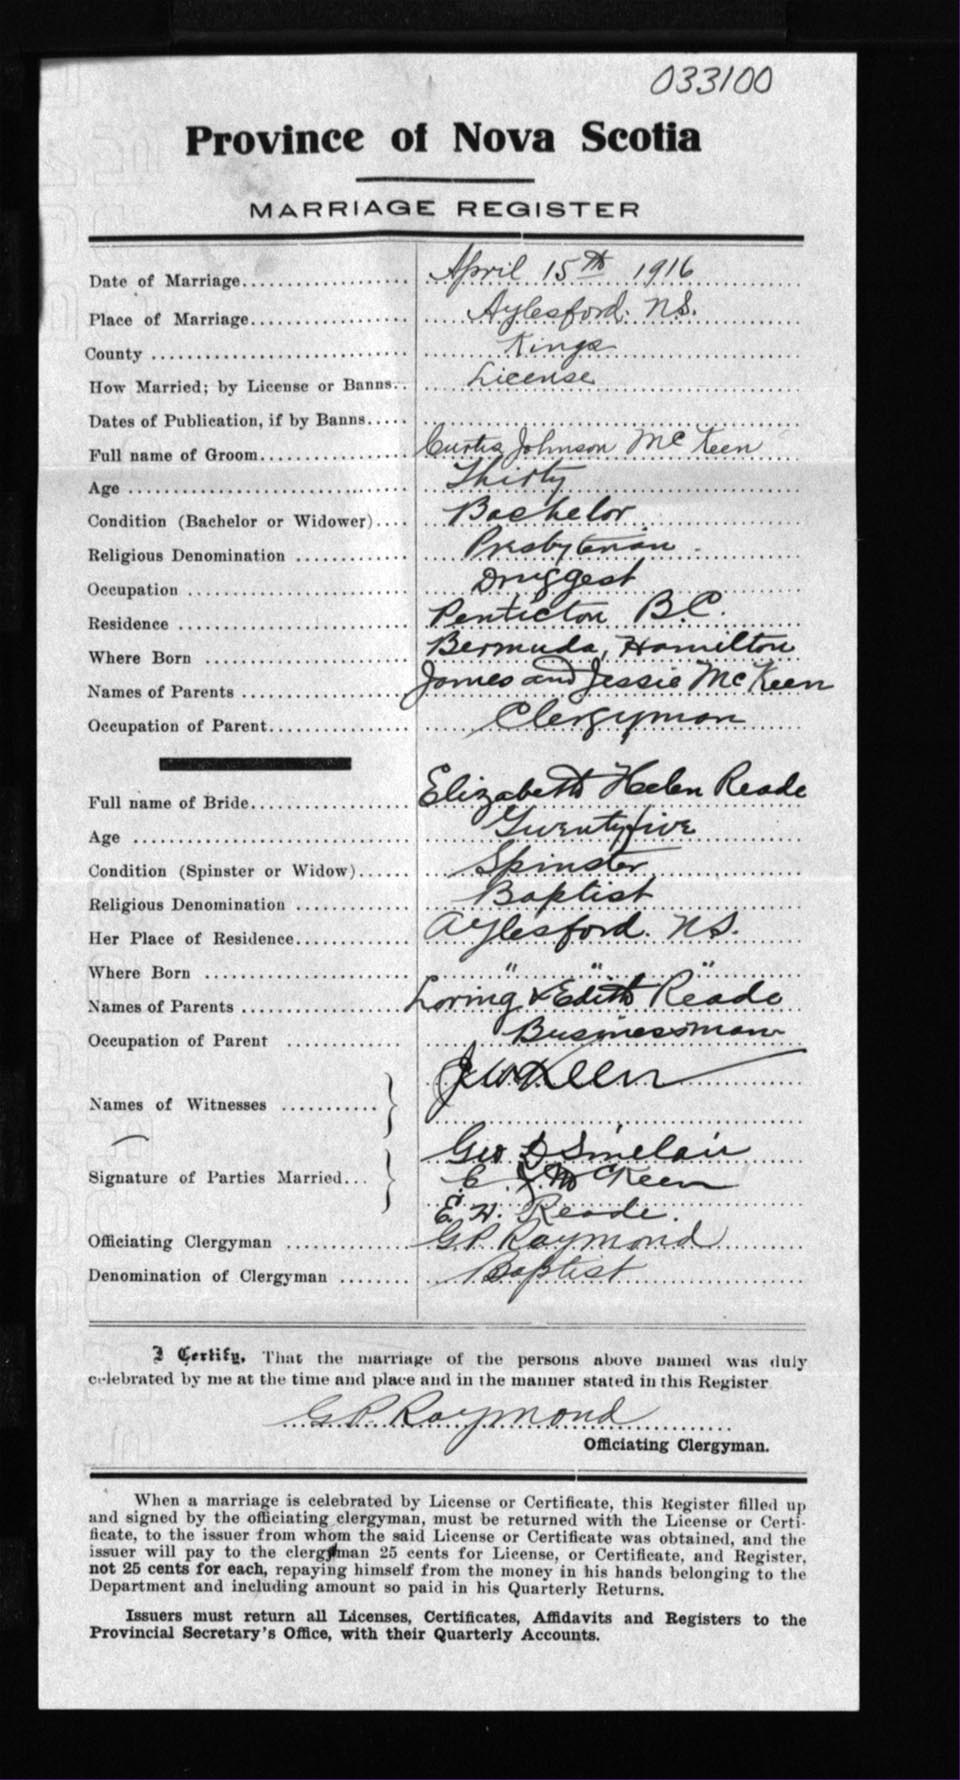 033100
Province of Nova Scotia
MARRIAGE REGISTER
Date of Marriage.................. April 15th 1916
Place of Marriage................. Aylesford. N.S.
County ........................... Kings
How Married; by License or Banns.. License
Dates of Publication, if by Banns.....
Full name of Groom................ Curtis Johnson McKeen
Age .............................. Thirty
Condition (Bachelor or Widower).... Bachelor
Religious Denomination ............ Presbyterian
Occupation ........................ Druggest
Residence ......................... Penticton B.C.
Where Born ........................ Bermuda, Hamilton
Names of Parents .................. James and Jessie McKeen
Occupation of Parent............... Clergyman
Full name of Bride................. Elizabeth Helen Reade
Age ............................... Twenty five
Condition (Spinster or Widow)...... Spinster
Religious Denomination ............ Baptist
Her Place of Residence............. Aylesford. N.S.
Where Born ........................ " " "
Names of Parents .................. Loring & Edith Reade
Occupation of Parent .............. Businessman
Names of Witnesses ........... Keen
Geo D Sinclair
Signature of Parties Married... C. J. McKeen
E. H. Reade.
Officiating Clergyman ............. G P Raymond
Denomination of Clergyman ........ Baptist
I Certify, That the marriage of the persons above named was duly
celebrated by me at the time and place and in the manner stated in this Register
G P Raymond
Officiating Clergyman.
When a marriage is celebrated by License or Certificate, this Register filled up
and signed by the officiating clergyman, must be returned with the License or Certi-
ficate, to the issuer from whom the said License or Certificate was obtained, and the
issuer will pay to the clergyman 25 cents for License, or Certificate, and Register,
not 25 cents for each, repaying himself from the money in his hands belonging to the
Department and including amount so paid in his Quarterly Returns.
Issuers must return all Licenses, Certificates, Affidavits and Registers to the
Provincial Secretary's Office, with their Quarterly Accounts.